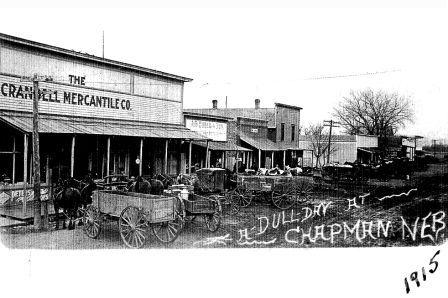 THE
CRANDELL MERCANTILE CO.
A DULL DAY AT
CHAPMAN NEB
1915